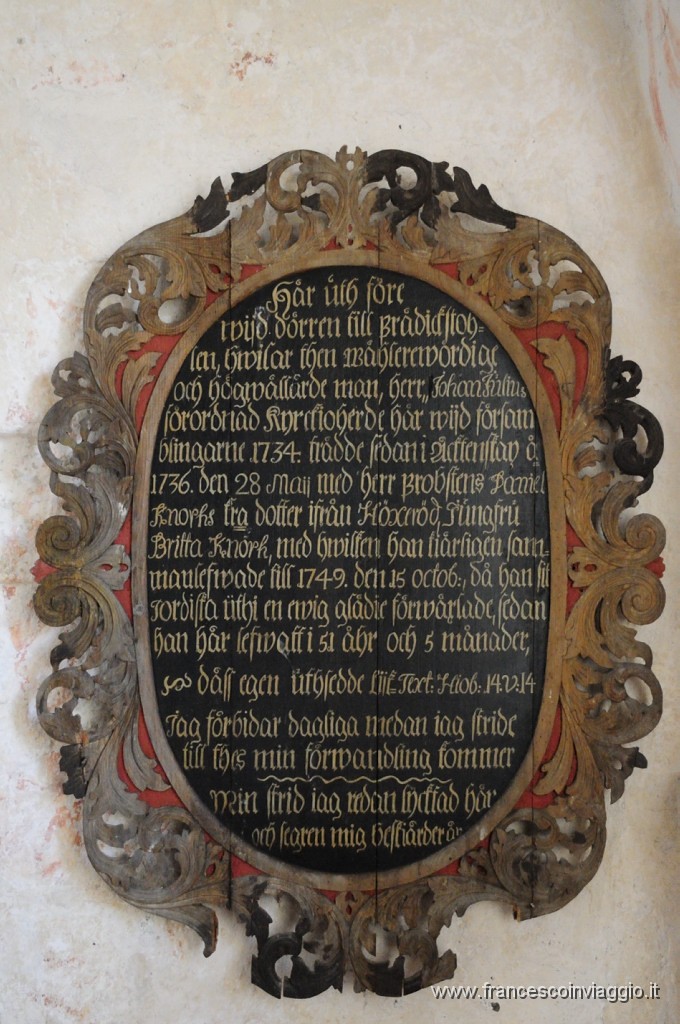 Hår ùth före
wijd dörren till Prådickstoh-
len, hwilar then Wåhlerewördige
och högwållärde man, herr,, Johan Julius
förordnad Kyrckioherde här wijd försam
blingarne 1734. trädde sedan i Ächtenskap å
1736. den 28 Maij med herr Probstens Daniel
Knophs fra dotter ifrån Höxeröd, Jungfrü
Britta Knöph, med hwilken han kiärligen sam-
manlefwade till 1749. den 15 octob:, då han sit
Jordiska ùthi en ewig glädie förwäxlade, sedan
han här lefwatt i 51 åhr och 5 månader,
dåss egen ùthsedde Lijk Text: Hiob: 14.V:14
Jag förbidar dagliga medan iag stride
till thes min förwandling kommer
Min strid iag redan lycktad här
och segren mig beskiärder är
www.francescoinviaggio.it